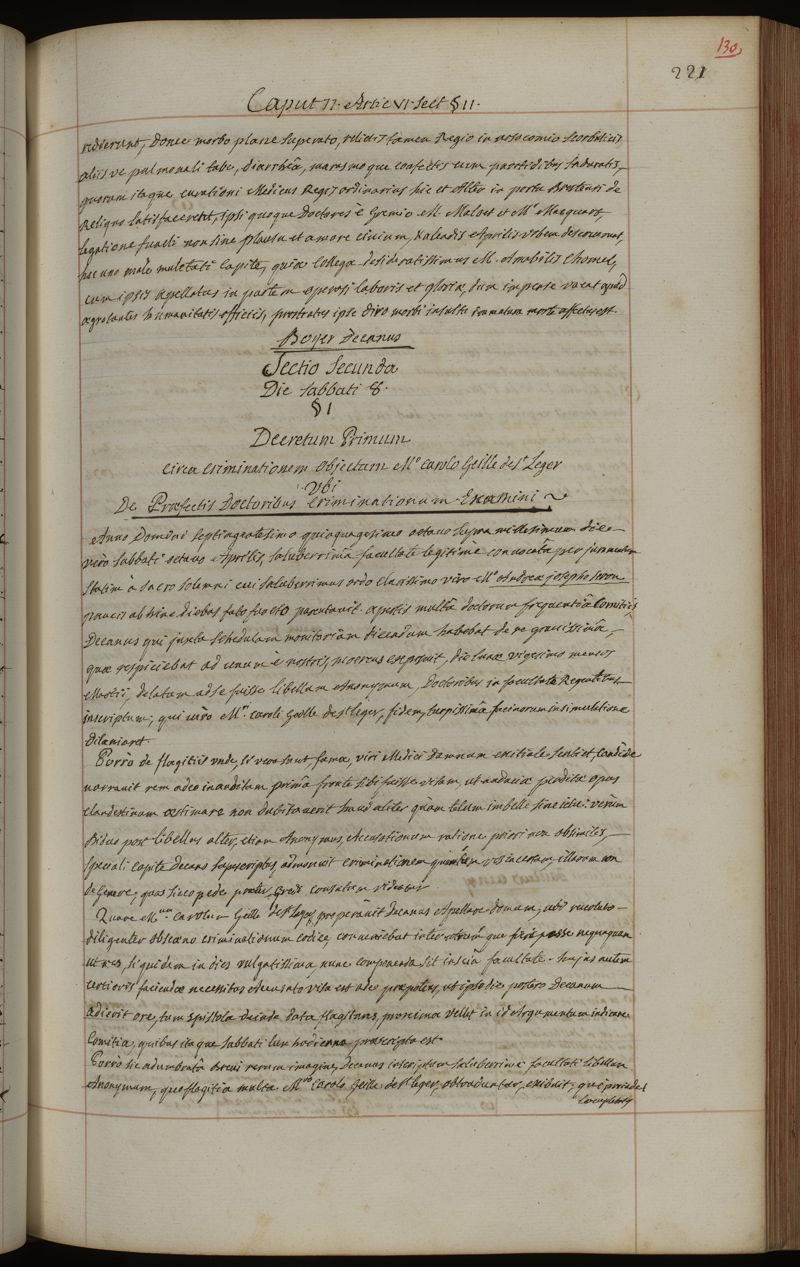 130
221
Caput II. Artic VI. Sect § II.
redierunt, donec morbo plane superato, relictis tamen Regio in nosocomio scorbuticis
aliisve pulmonali tabe, diarrhœâ, marasmoque confectis cum parotidibus induratis,
quorum itaque curationi Medicus Regis ordinarius hic et alter in portu Brestensi de
Reliquo satisfacerent, ipsi quoque Doctores è Gremio M. Maloet et Mr.
legatione functi non sine plausu et amore civium, Kalendis Aprilis urbem
hoc uno male mulctati capite, quia Collega desideratissimus M. Amabilis Chomel,
cum ipsis apellatus in partem operosi laboris et gloriæ, dum impense vacat
ægrotantes humanitatis officiis, prostratus ipse diro morbi insultu immatura morte affectus est.
Boyer Decanus
Sectio Secunda
Die Sabbati 8.
§ I
Decretum Primum
Circa criminationem objectam Mo. Carolo Geille de St Leger
Ubi
De Præfectis Doctoribus Criminationum Examini
Anno Domini septingentesimo quinquagesimo octavo supra millesimum die
verò Sabbati octavo Aprilis, saluberrimâ facultate legitimè convocatâ per juramentum
statim à sacro solemni cui saluberrimus ordo clarissimo viro Mo. Andreæ Josepho
paucis abhinc diebus fato functo parentavit. apertis multâ doctorum frequentiâ Comitiis
Decanus qui juxta schedulam monitoriam dicendum habebat de re gravissimâ,
quæ respiciebat ad unum è nostris, mœrens exposuit, die lunæ vigesimo mensis
Martii, delatum ad se fuisse libellum Anonymum, Doctoribus in facultate Regentibus
inscriptum, qui viro Mr. Caroli Geille de St Leger, fidem, turpissimâ facinorum insimulatione
dilaniaret.
Porrò de flagitiis unde, si vera sunt, fama, viri Medici damnum exitiale sentiet, Candide
narravit rem adeo inauditam primâ fronte sibi fuisse visam, ut audaciæ perditæ opus
clandestinum æstimare non dubitaverit haud aliter quam telum imbelle sine ictu: verùm
Biduo post libellus alter, etiam Anonymus, Accusationum ratione priori non absimilis,
speciali capite Decano superscriptus, admonuit criminationem illarum non
de Genere, quas sicco pede prætergredi consultum videatur
Quare M.um Carolum Geille de St Leger, properavit Decanus Apellare domum, ubi revoluto
diligenter obscæno criminationum codice, conveniebat inter utrumque fieri posse nequaquam
ut res, siquidem in dies vulgatissima, nunc componenda sit insciâ facultate. hujus autem
certioris faciendæ necessitas accusato visa est adeo præpotens, ut ipso die postero Decanum
adierit ore, tum epistola deinde data flagitans, proxima vellet in id Argumentum indicare
Comitia, quibus itaque Sabbati lux hodierna præscripta est.
Porrò sic adumbratâ brevi rerum imagine, Decanus inscriptum saluberrimæ facultati libellum
Anonymum, quo flagitia multa M.ro Carolo Geille de St Leger, obtruduntur, exibuit,